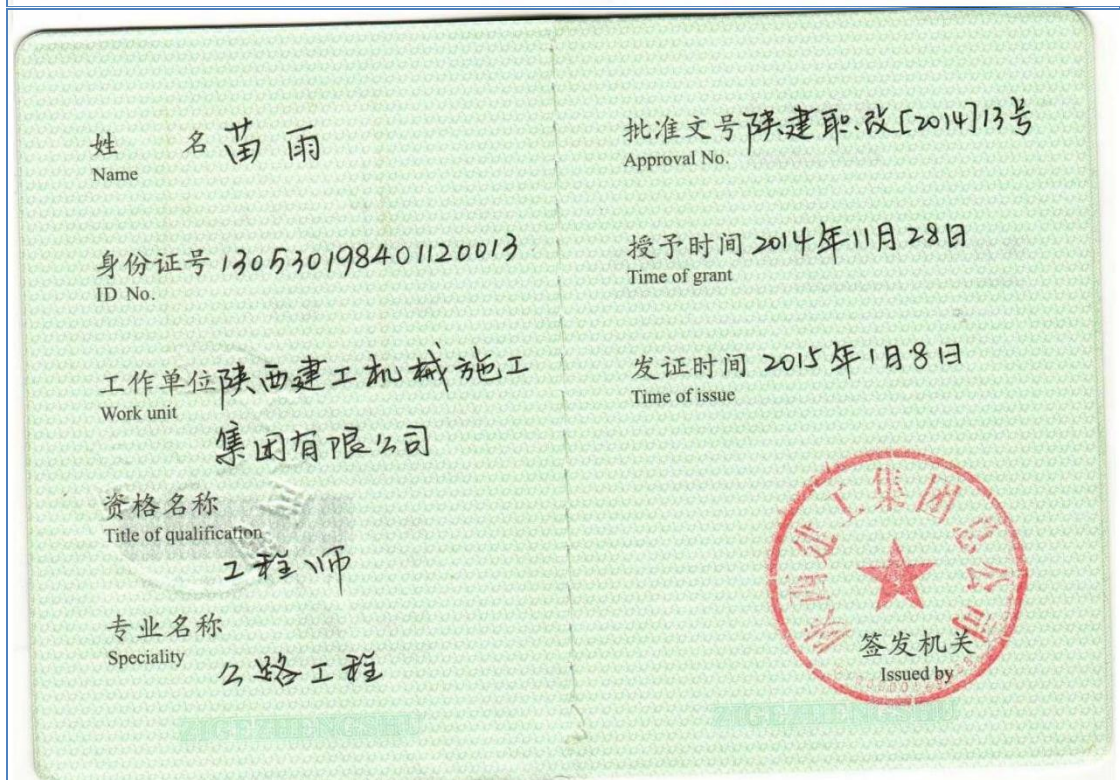 姓 名 苗雨
Name
身份证号 130530198401120013
ID No.
工作单位 陕西建工机械施工
Work unit
集团有限公司
资格名称
Title of qualification
工程师
专业名称
Speciality
公路工程
ZIGEZHENGSHU
批准文号 陕建职改[2014]13号
Approval No.
授予时间 2014年11月28日
Time of grant
发证时间 2015年1月8日
Time of issue
陕西建工集团总公司
签发机关
Issued by
ZIGEZHENGSHU